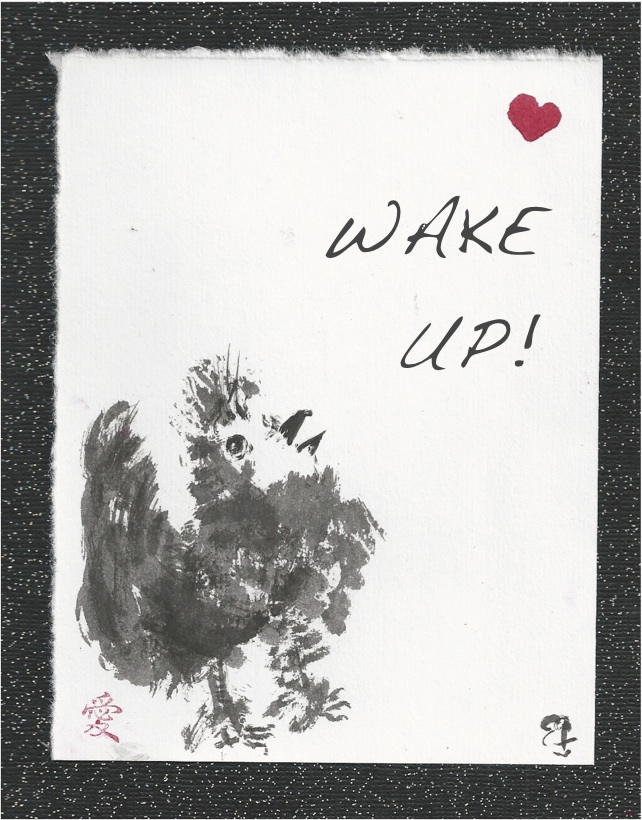 WAKE
UP!
愛